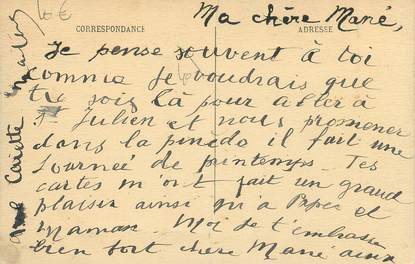 10 €
CORRESPONDANCE
ADRESSE
Ma chère Mané,
Je pense souvent à toi
comme je voudrais que
tu sois là pour aller à
St Julien et nous promener
dans la pinède il fait une
Journée de printemps. Tes
cartes m'ont fait un grand
plaisir ainsi
et
Maman. Moi je t'embrasse
bien fort chère Mané